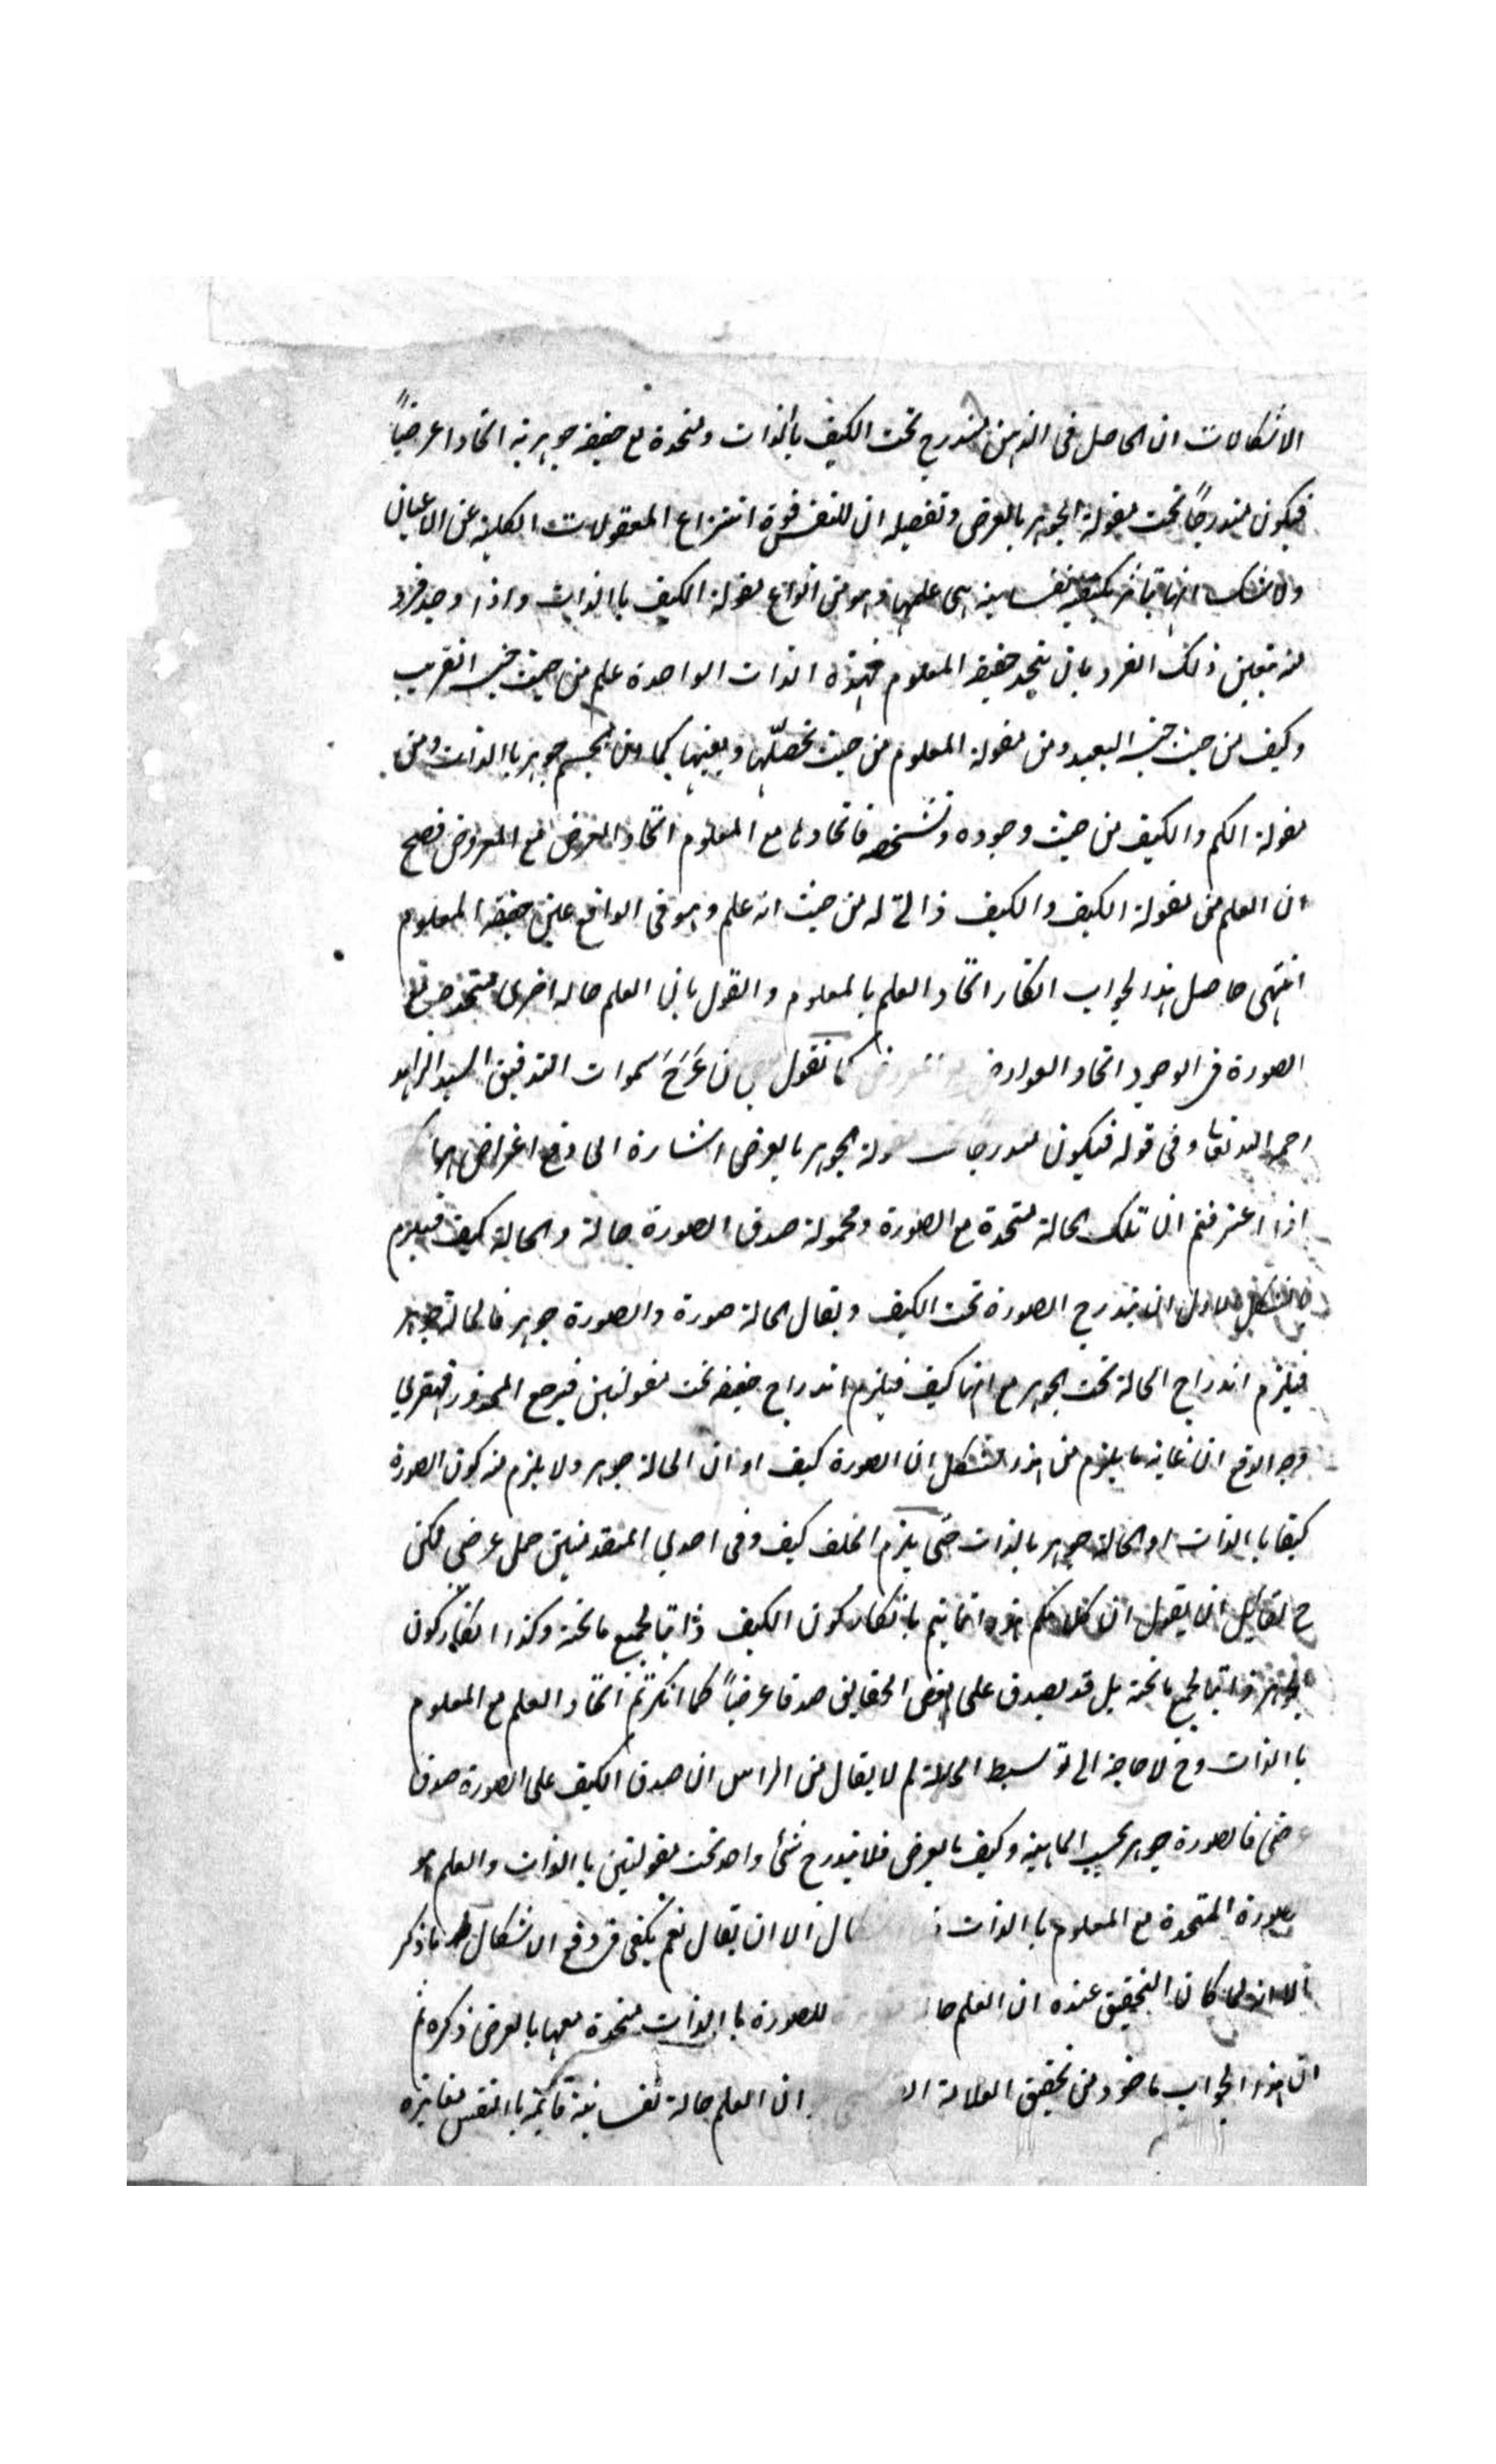 الاشكالات ان الحاصل فى الذهن مندرج تحت الكيف بالذات ومتحدة مع حقيقة جوهرية اتحادا عرضياً
فيكون مندرجاً تحت مقولة الجوهر بالعرض وتفصيله ان للنفس قوة انتزاع المعقولات الكلية عن الاعيان
ولا شك انها تتاثر بكيفية نفسانية هى علمها وهو من انواع مقولة الكيف باالذات واذا وجد فرد
منه يتعين ذلك الفرد بان يتحد حقيقة المعلوم فهذه الذات الواحدة علم من حيث جنسه القريب
وكيف من حيث جنسه البعيد ومن مقولة المعلوم من حيث تحصلّها وتعينها كما ان الجسم جوهر باالذات ومن
مقولة الكم والكيف من حيث وجوده وتشخصه فاتحادها مع المعلوم اتحاد العرض مع المعروض فصح
ان العلم من مقولة الكيف والكيف ذاتى له من حيث انه علم وهو فى الواقع عين حقيقة المعلوم
انتهى حاصل هذا الجواب انكار اتحاد العلم بالمعلوم والقول بان العلم حالة اخرى متحد مع
الصورة فى الوجود اتحاد العوارض كما نقول عَرَجَ سموات التدقيق السيد الزاهد
رحمه الله تعا وفى قوله فيكون مندرجا تحت مقولة الجوهر بالعرض اشارة الى دفع اعتراض
اذا اعترفتم ان تلك الحالة متحدة مع الصورة ومحمولة صدق الصورة حالة والحالة كيف فيلزم
الشكل الاول ان يندرج الصورة تحت الكيف ويقال الحالة صورة والصورة جوهر فالحالة جوهر
فيلزم اندراج الحالة تحت الجوهر مع انها كيف فيلزم اندراج حقيقة تحت مقولتين فيرجع المحذور قهقرى
وجه الدفع ان غاية ما يلزم من هذا الشكل ان الصورة كيف او ان الحالة جوهر ولا يلزم منه كون الصورة
كيفا باالذات او الحالة جوهر بالذات حتى يلزم الخلف كيف وفى احدى المتقدمتين حمل عرضى لكن
ح لقايل ان يقول ان كلامكم هذا انما يتم بانكار كون الكيف ذاتيا لجميع ما تحته وكذا انكار كون
الجوهر ذاتيا لجميع ما تحته بل قد يصدق على بعض الحقايق صدقا عرضياً كما انكرتم اتحاد العلم مع المعلوم
باالذات وح لا حاجة الى توسيط الحالة لم لا يقال من الراس ان صدق الكيف على الصورة صدق
عرضى فالصورة جوهر بحسب الماهية وكيف بالعرض فلا يندرج شئ واحد تحت مقولتين باالذات والعلم هو
الصورة المتحدة مع المعلوم باالذات الا ان يقال نعم يكفى فى دفع الاشكال ما ذكر
الا انه لما كان التحقيق عنده ان العلم للصورة باالذات متحدة معها بالعرض ذكره ثم
ان هذا الجواب ماخوذ من تحقيق العلامة ان العلم حالة نفسانية قائمة باالنفس مغايرة